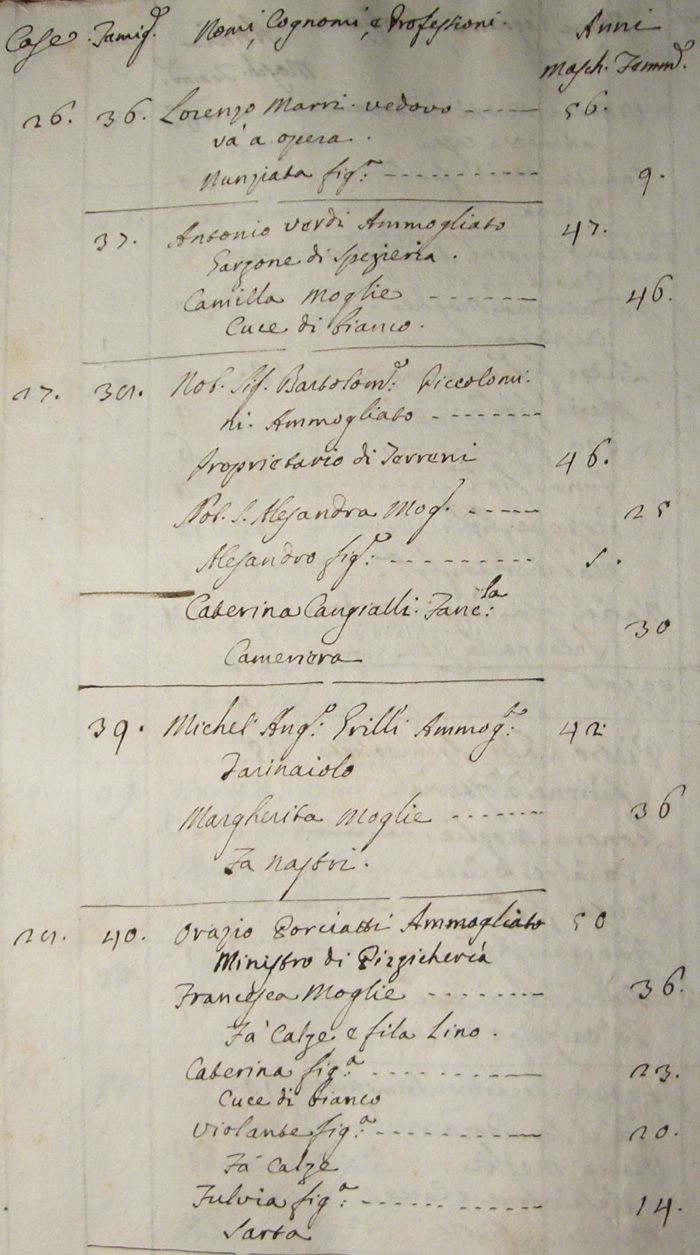 Case. Famig.e Nomi, Cognomi, e Professioni. Anni
Masch. Femm.e
26. 36. Lorenzo Marri. vedovo ----- 56.
và a opera.
Nunziata fig.a ---------- 9.
37. Antonio Verdi Ammogliato 47.
Garzone di Spezieria.
Camilla Moglie ------ 46.
Cuce di bianco.
27. 38. Nob. Sig. Bartolom.e: Piccolomi-
ni. Ammogliato -------
Proprietario di Terreni 46.
Nob. S. Alesandra Mog. ----- 25
Alesandro fig.o: --------- 1.
Caterina Fanc.la: 30
Cameriera
39. Michel' Ang.o: Grilli Ammog.to: 42.
Farinaiolo
Margherita Moglie ------ 36
Fa Nastri.
28. 40. Orazio Porciatti Ammogliato 50
Ministro di Pizzicheria
Francesca Moglie ------- 36.
Fà Calze e fila Lino.
Caterina fig.a --------- 23.
Cuce di bianco
Violante fig.a --------- 20.
Fà Calze
Fulvia fig.a ---------- 14.
Sarta